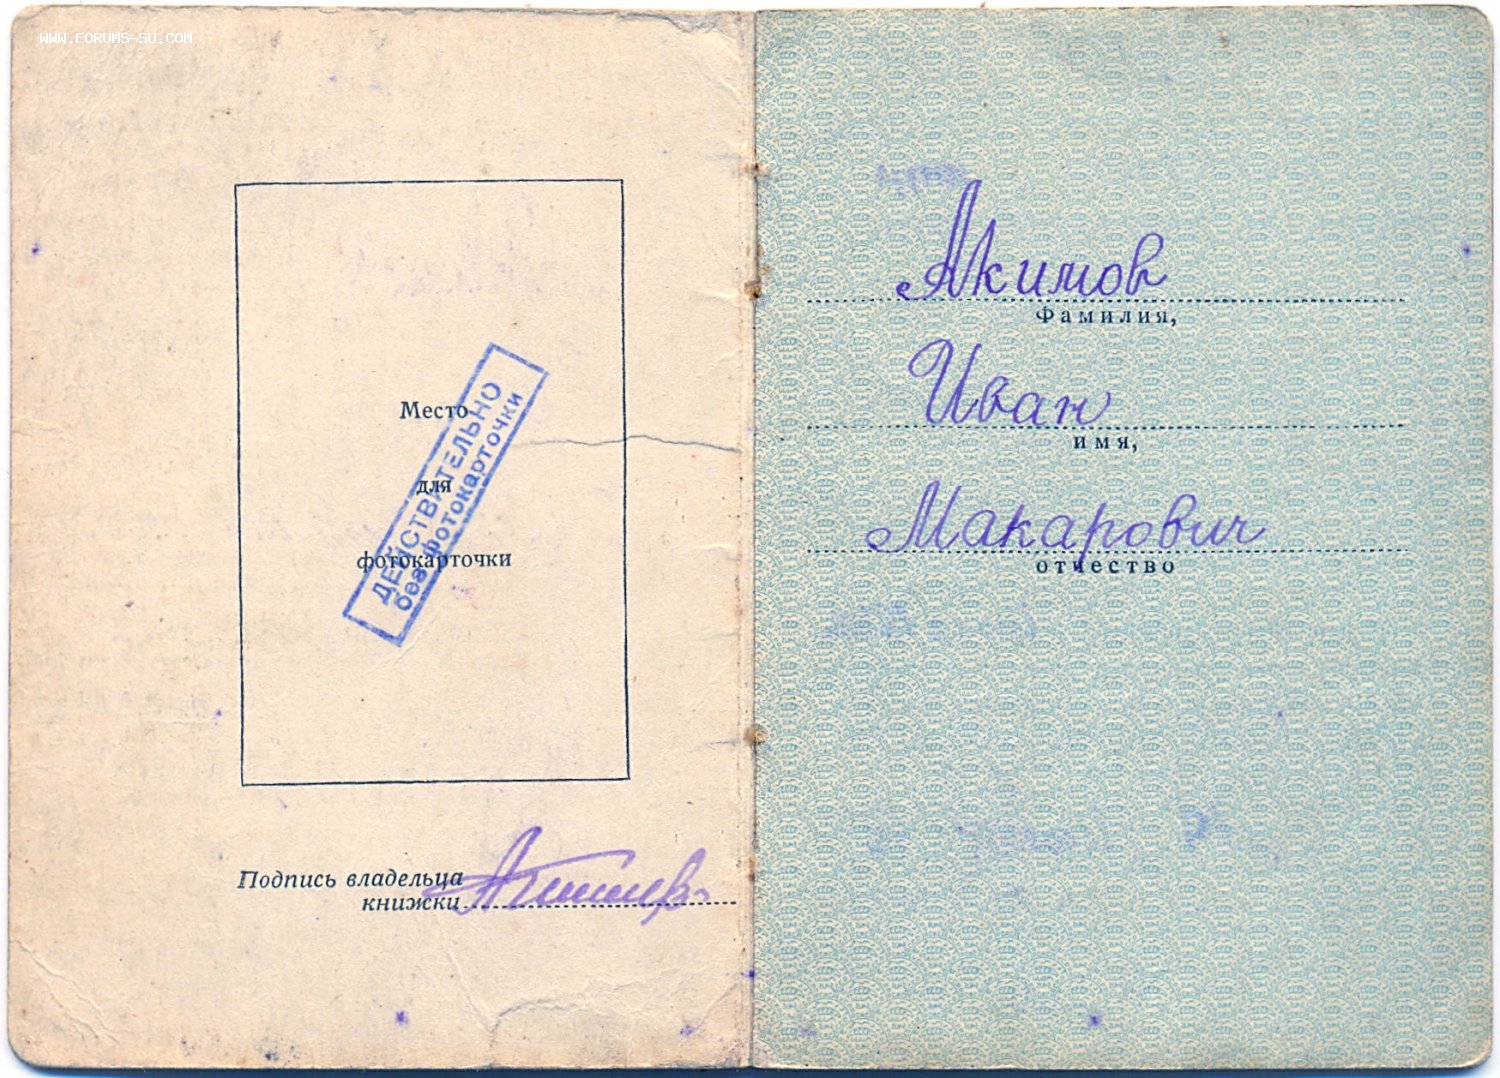 WWW.FORUMS-SU.COM
Место
для
фотокарточки
ДЕЙСТВИТЕЛЬНО
без фотокарточки
Подпись владельца
книжки
Акимов
Акимов
Фамилия,
Иван
имя,
Макарович
отчество